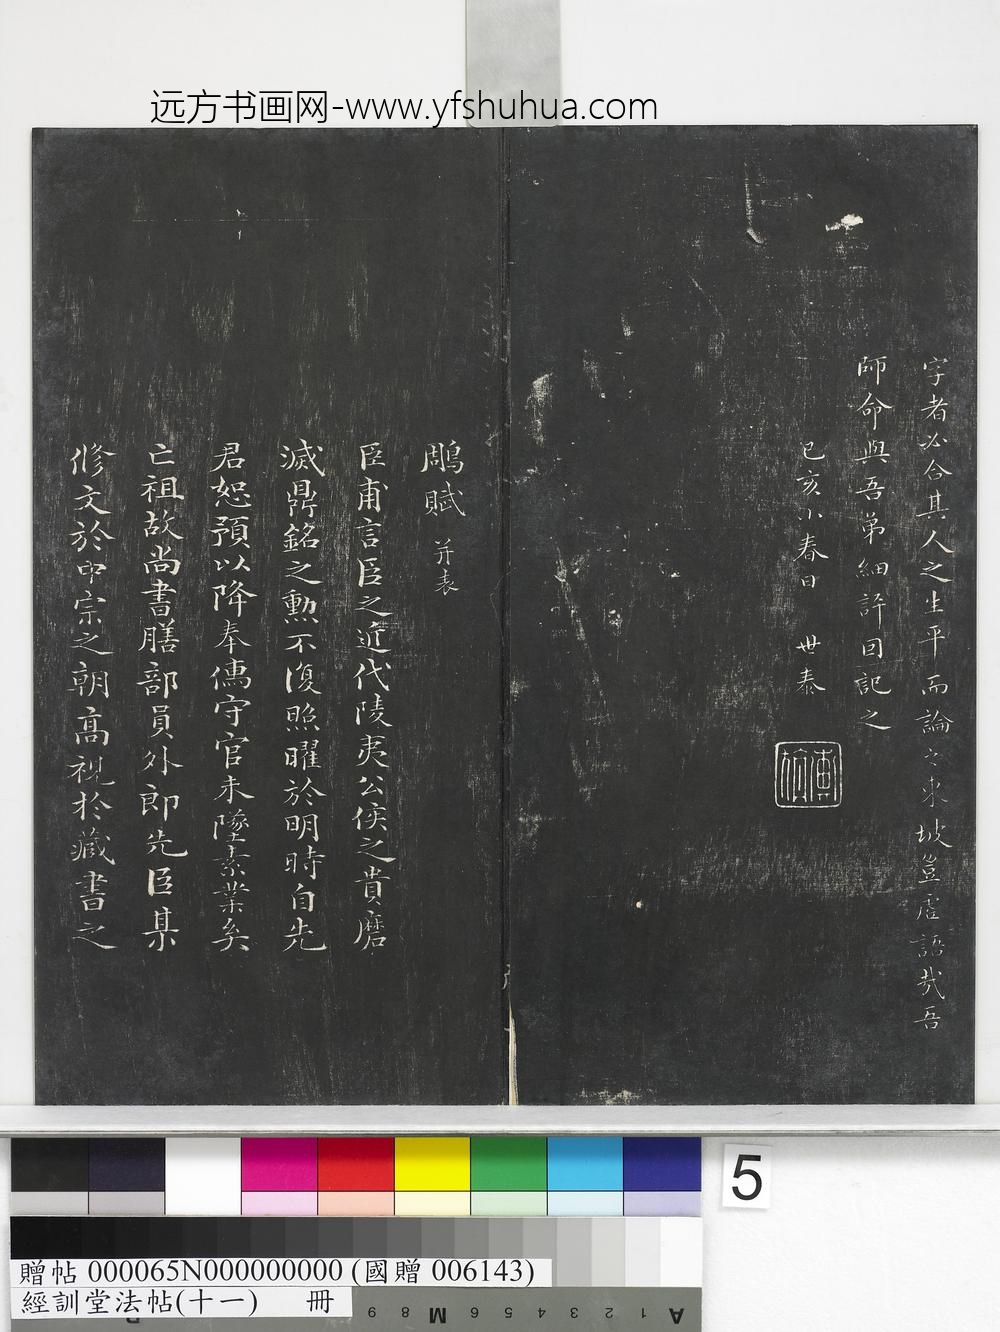 远方书画网-www.yfshuhua.com
字者必合其人之生平而論之東坡豈虛語哉吾
師命與吾弟細評回記之
己亥小春日 世泰
鵰賦 并表
臣甫言臣之近代陵夷公侯之貴磨
滅鼎銘之勳不復照曜於明時自先
君恕預以降奉儒守官未墜素業矣
亡祖故尚書膳部員外郎先臣某
修文於中宗之朝高視於藏書之
5
贈帖 000065N000000000 (國贈 006143)
經訓堂法帖(十一) 冊
A 1 2 3 4 5 6 M 8 9